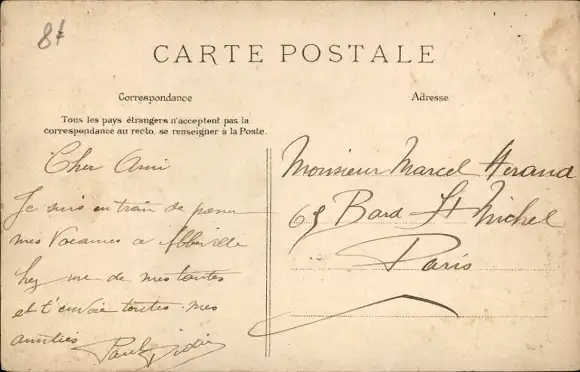 8f
CARTE POSTALE
Correspondance
Adresse
Tous les pays étrangers n'acceptent pas la
correspondance au recto, se renseigner à la Poste.
Cher Ami
Je suis en train de passer
mes Vacances a Abbeville
chez une de mes tantes
et t'envoie toutes mes
amitiés
Paul
Monsieur Marcel Herand
65 Bard St Michel
Paris